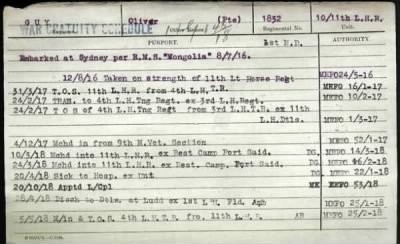 GUY Oliver (Pte) 1832 10/11th L.H.R.
WAR GRATUITY SCHEDULE Regimental No.
PURPORT. 1st M.D. AUTHORITY
Embarked at Sydney per R.M.S."Mongolia" 8/7/16.
12/8/16 Taken on strength of 11th Lt Horse Regt MEFO24/5-16
31/3/17 T.O.S. 11th L.H.R. from 4th L.H.T.R. MEFO 16/1-17
24/2/17 TRAN. to 4th L.H.Tng Regt ex 3rd L.H.Regt. MEFO 10/2-17
24/2/17 T O S of 4th L.H.Tng Regt from 3rd L.H.T.R. ex 11th
L.H.Dtls. MEFO 1/3-17
4/12/17 Mchd in from 9th M.Vet. Section MEFO 52/1-17
10/3/18 Mchd into 11th L.H.R. ex Rest Camp Port Said. DG. MEFO 14/3-18
24/3/18 Mchd into 11th L.H.R. ex Rest. Camp, Port Said. DG. MEFO 46/2-18
20/4/18 Sick to Hosp. ex Unit DG. MEFO 22/1-18
20/10/18 Apptd L/Cpl MK MEFO 53/18
28/4/18 Disch to Dtls. at Ludd ex 1st L.H. Fld. Aqh MEFO 25/1-18
5/5/18 M/in & T.O.S. 4th L.H.T.R. fro. 11th L.H.R. AR MEFO 25/2-18